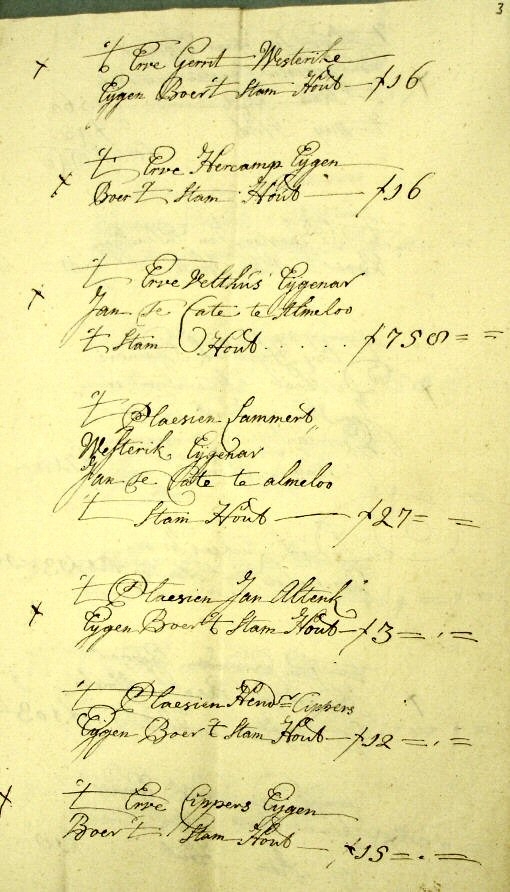 3
't Erve Gerrit Westerike
Eygen Boer 't Stam Hout — ƒ 16
't Erve Hercamp Eygen
Boer 't Stam Hout — ƒ 16
't Erve Velthus Eygenar
Jan Te Cate te Almeloo
't Stam Hout . . . . . ƒ 758 = =
't Plaesien Lammert
Westerik Eygenar
Jan Te Cate te almeloo
't Stam Hout — ƒ 27 = =
't Plaesien Jan Altenk
Eygen Boer 't Stam Hout — ƒ 3 = . =
't Plaesien Hendr Cippers
Eygen Boer 't Stam Hout — ƒ 12 = . =
't Erve Cippers Eygen
Boer 't Stam Hout — ƒ 15 = . =